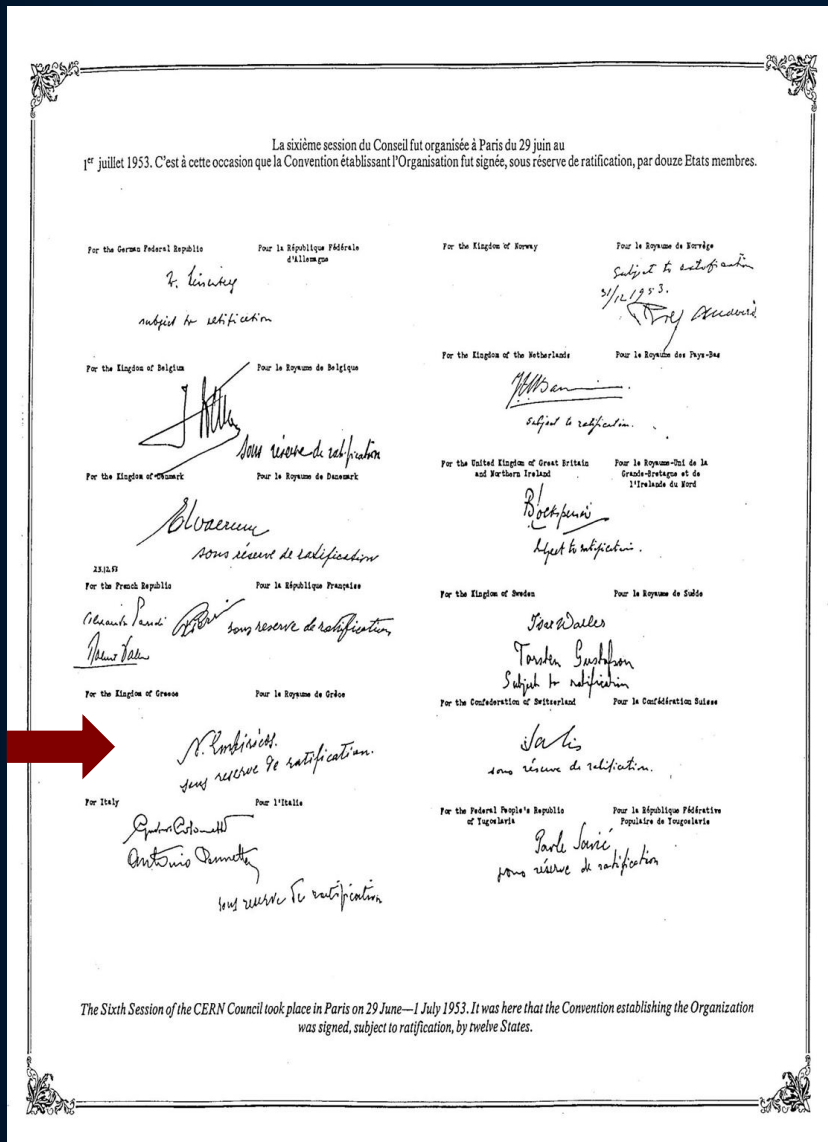 La sixième session du Conseil fut organisée à Paris du 29 juin au
1er juillet 1953. C'est à cette occasion que la Convention établissant l'Organisation fut signée, sous réserve de ratification, par douze Etats membres.
For the German Federal Republic
Pour la République Fédérale
d'Allemagne
subject to ratification
For the Kingdom of Belgium
Pour le Royaume de Belgique
sous réserve de ratification
For the Kingdom of Denmark
Pour le Royaume de Danemark
sous réserve de ratification
23.12.53
For the French Republic
Pour la République Française
sous reserve de ratification
For the Kingdom of Greece
Pour le Royaume de Grèce
N. Embiricos.
sous reserve de ratification.
For Italy
Pour l'Italie
Antonio Pennetta
sous reserve de ratification
For the Kingdom of Norway
Pour le Royaume de Norvège
Subject to ratification
31/12 1953.
For the Kingdom of the Netherlands
Pour le Royaume des Pays-Bas
subject to ratification.
For the United Kingdom of Great Britain
and Northern Ireland
Pour le Royaume-Uni de la
Grande-Bretagne et de
l'Irelande du Nord
subject to ratification.
For the Kingdom of Sweden
Pour le Royaume de Suède
Ivar Waller
Torsten Gustafson
Subject to ratification
For the Confederation of Switzerland
Pour la Confédération Suisse
sous réserve de ratification.
For the Federal People's Republic
of Yugoslavia
Pour la République Fédérative
Populaire de Yougoslavie
Pavle Savić
sous réserve de ratification
The Sixth Session of the CERN Council took place in Paris on 29 June—1 July 1953. It was here that the Convention establishing the Organization
was signed, subject to ratification, by twelve States.